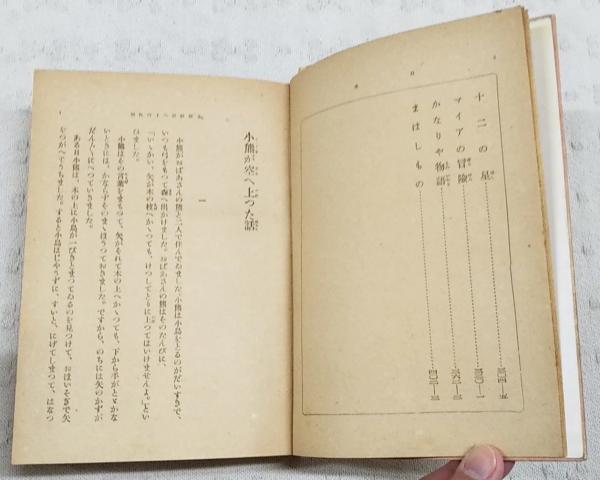 目次
十二の星………三〇四―五
マイアの冒險………三〇―一
かなりや物語………三六二―三
まはしもの………四〇二―三
小熊が空へ上つた話
一
小熊がおばあさんの熊と二人で住んでゐました。小熊は小鳥をとるのがだいすきで、
いつも弓をもつて森へ出かけました。おばあさんの熊はそのたんびに、
「いゝかい、矢が木の枝へかゝつても、けつしてとりに上つてはいけませんよ。」とい
ひました。
小熊はその言葉をまもつて、矢がそれて木の上へかゝつても、下から手がとゞかな
いときには、かならずそのまゝほうつておきました。ですから、のちには矢のかずが
だんだんにへつていきました。
ある日小熊は、木の上に小鳥が一ぴきとまつてゐるのを見つけて、おほいそぎで矢
をつがへてうちました。すると小鳥はじやうずに、すいと、にげてしまつて、はなつ